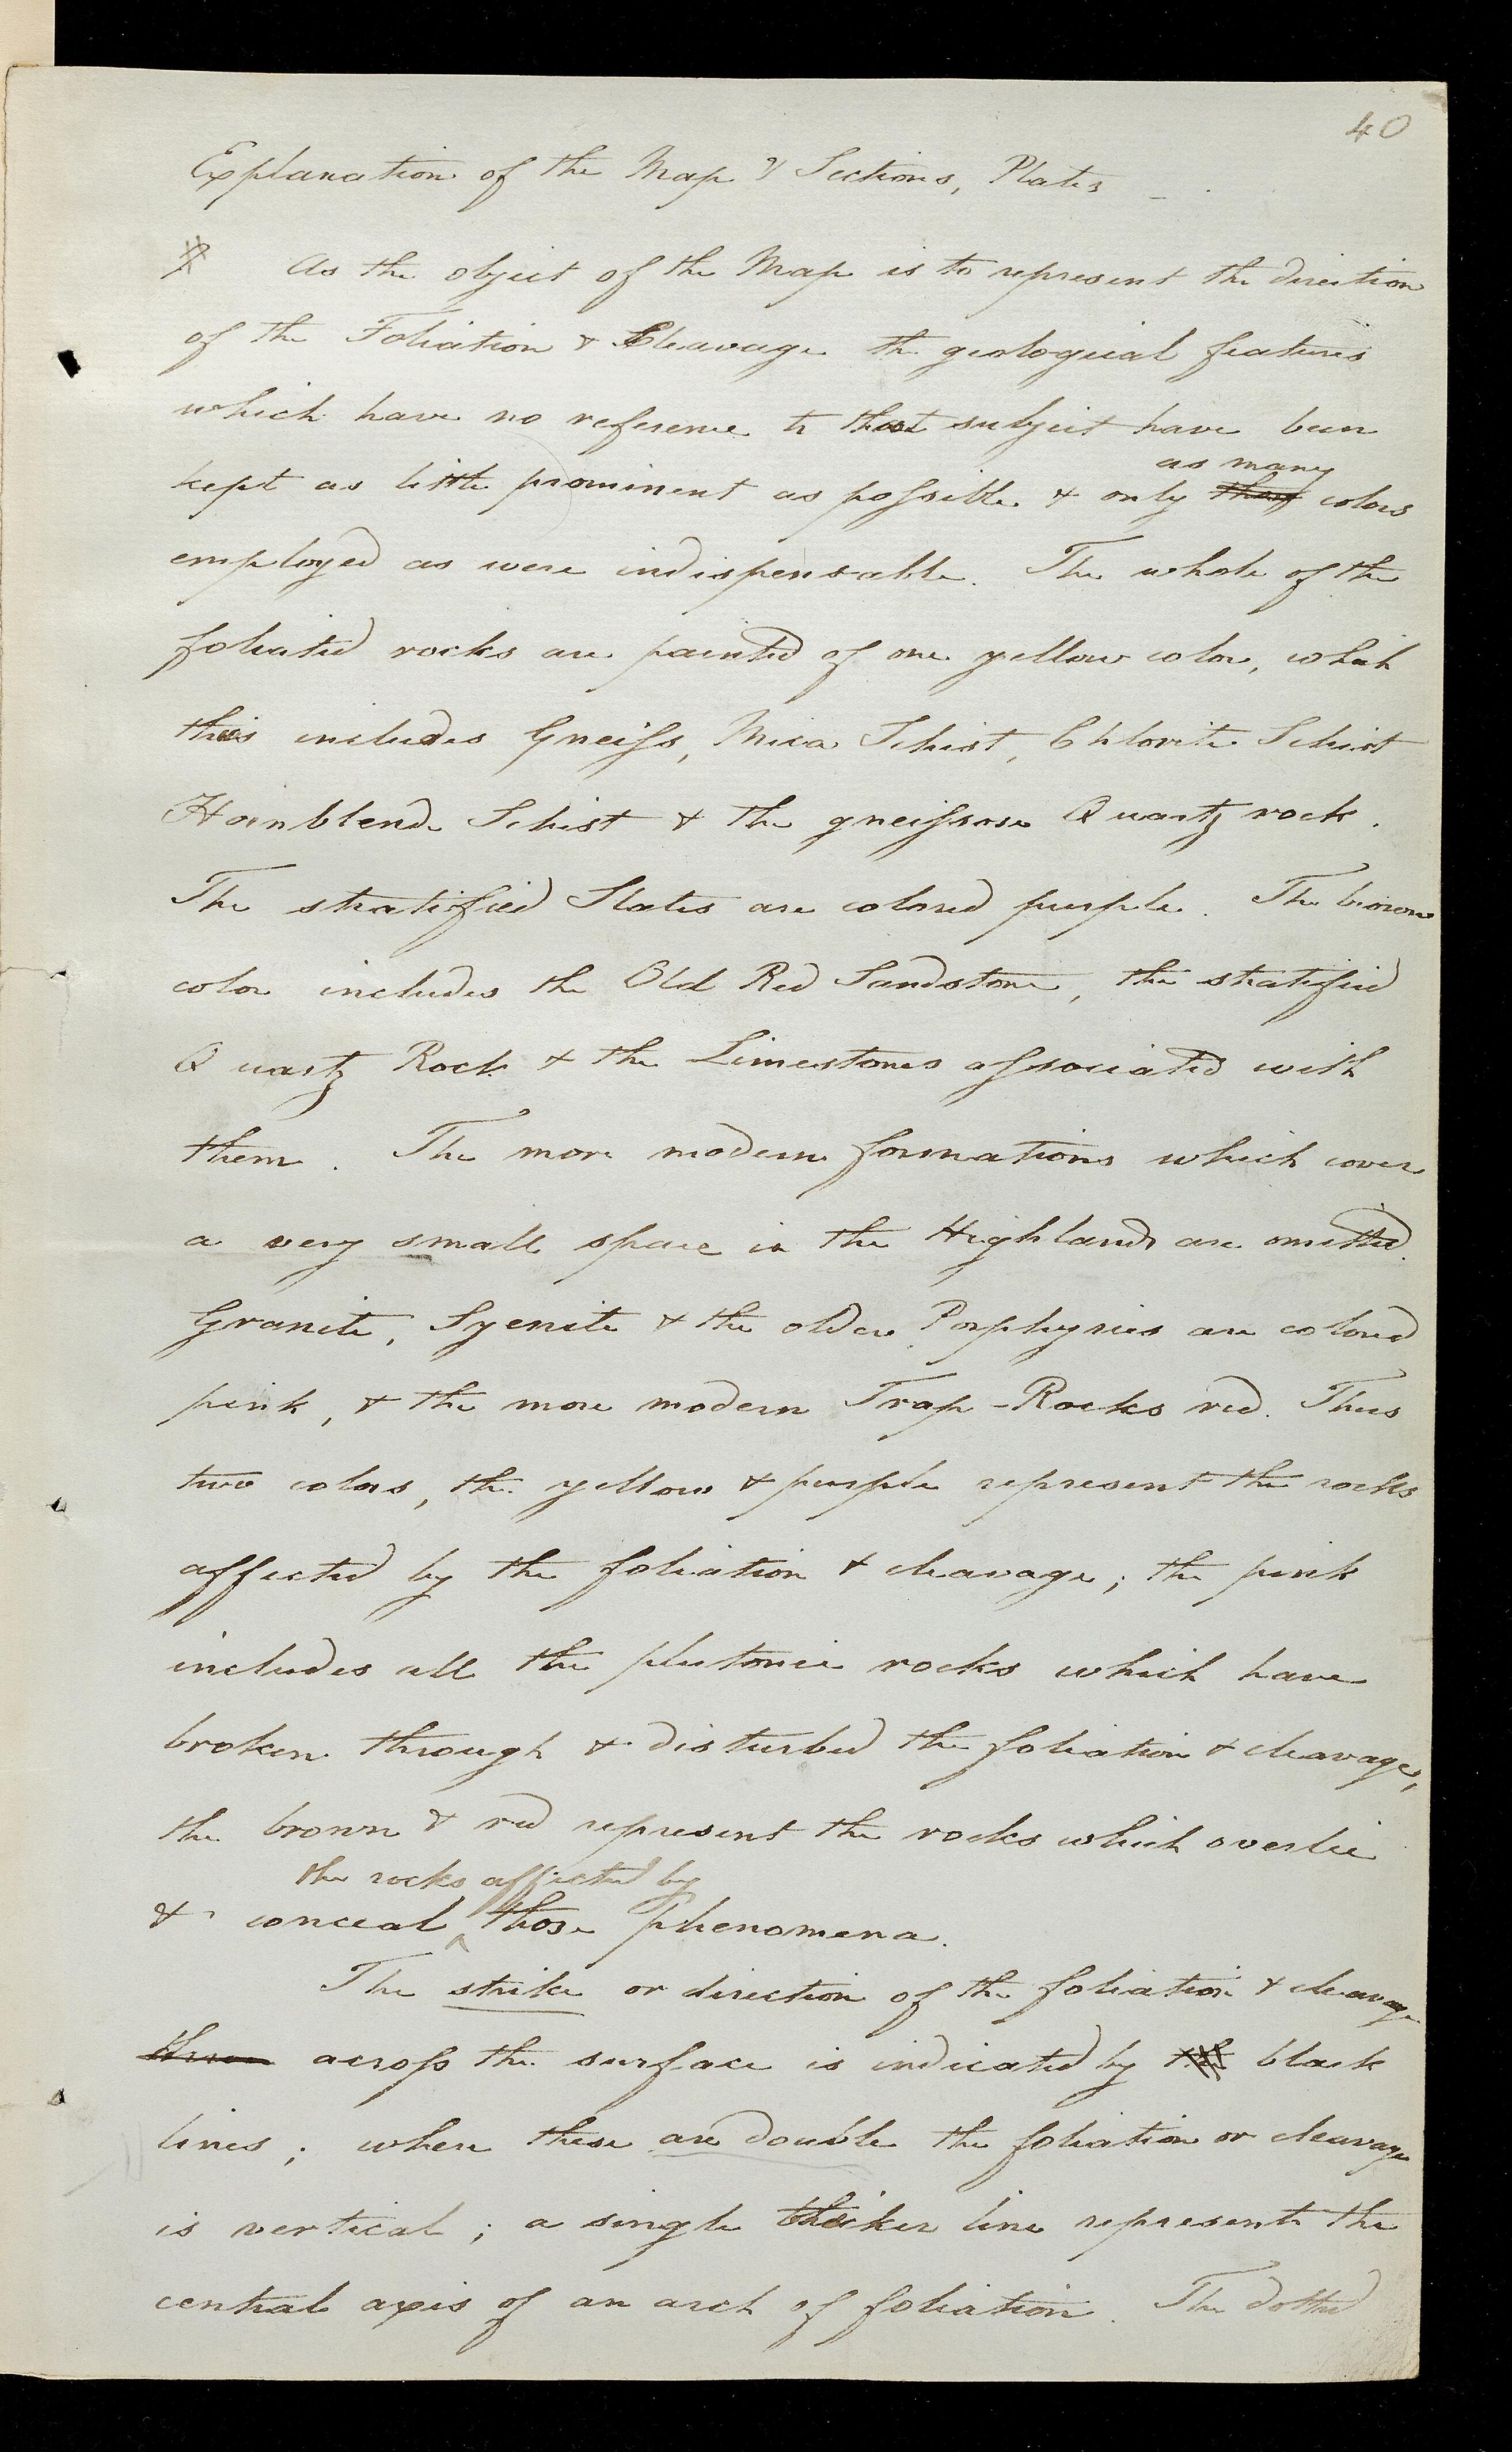 40
Explanation of the Map & Sections, Plates _ .
As the object of the Map is to represent the direction
of the Foliation & Cleavage the geological features
which have no reference to that subject have been
kept as little prominent as possible & only as many colors
employed as were indispensable. The whole of the
foliated rocks are painted of one yellow color, which
this includes Gneiss, Mica Schist, Chlorite Schist
Hornblende Schist & the gneissose Quartz rock.
The stratified Slates are colored purple. The brown
color includes the Old Red Sandstone, the stratified
Quartz Rock & the Limestones associated with
them. The more modern formations which cover
a very small space in the Highlands are omitted.
Granite, Syenite & the older Porphyries are colored
pink, & the more modern Trap-Rocks red. Thus
two colors, the yellow & purple represent the rocks
affected by the foliation & cleavage; the pink
includes all the plutonic rocks which have
broken through & disturbed the foliation & cleavage,
the brown & red represent the rocks which overlie
the rocks affected by
& conceal ^ those phenomena.
The strike or direction of the foliation & cleavage
across the surface is indicated by black
lines; where these are double the foliation or cleavage
is vertical; a single thicker line represents the
central axis of an arch of foliation. The dotted